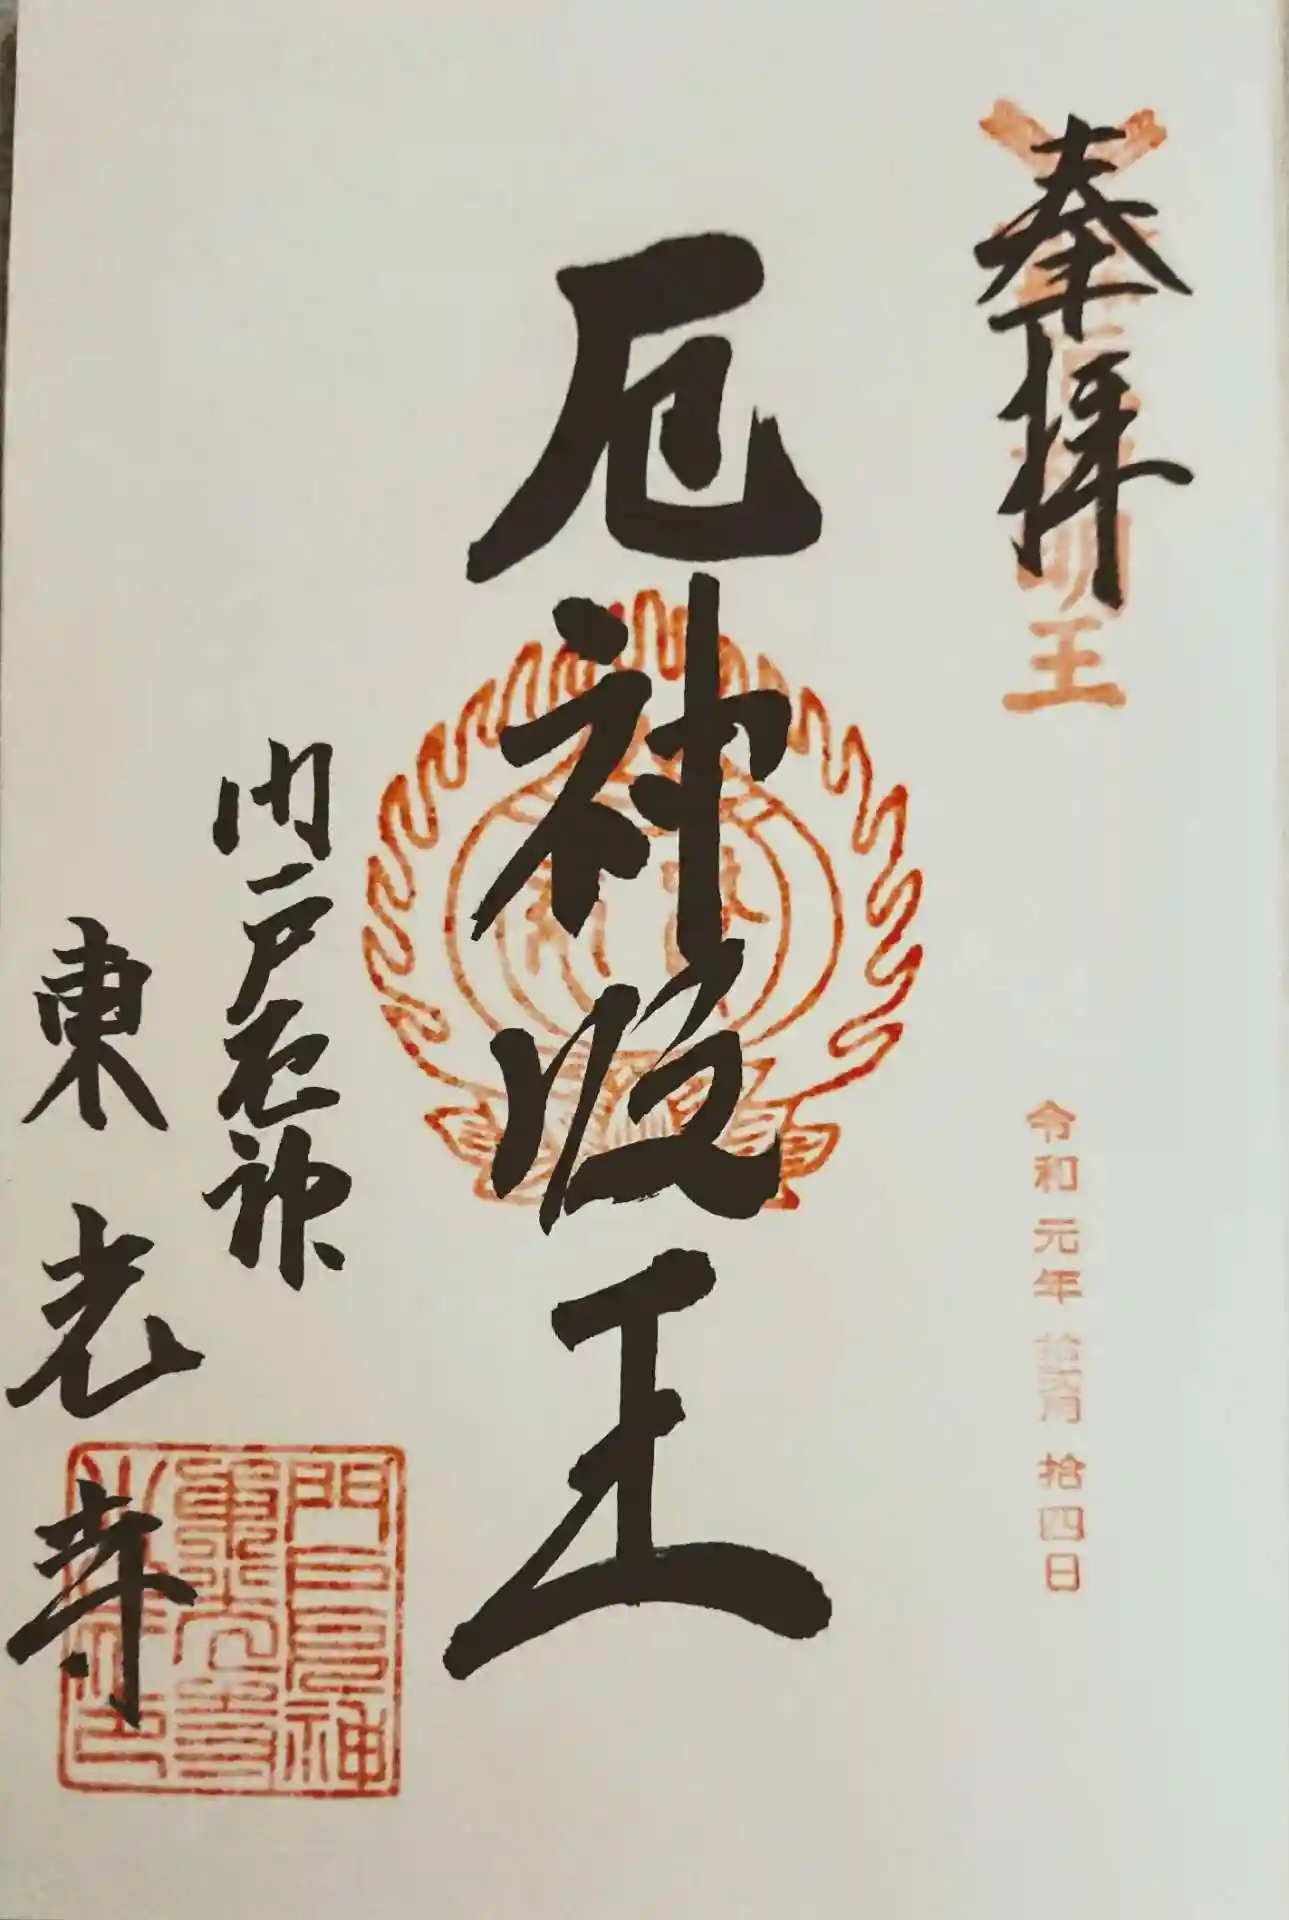 奉拝
明王
令和元年拾弐月拾四日
厄神明王
門戸厄神
東光寺
門戸厄神
東光寺